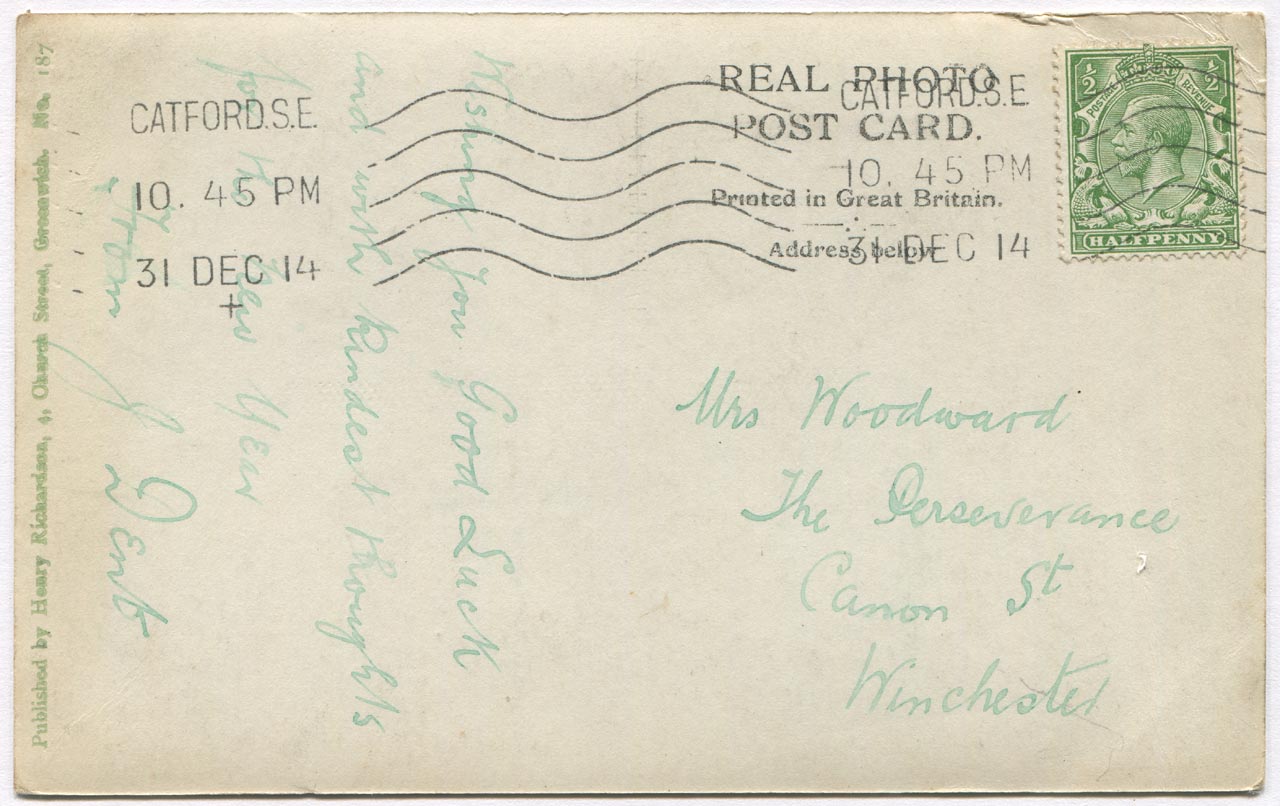 Published by Henry Richardson, 4, Church Street, Greenwich. No. 187
CATFORD.S.E.
10. 45 PM
31 DEC 14
+
REAL PHOTO
POST CARD.
Printed in Great Britain.
Address below
CATFORD.S.E
10. 45 PM
31 DEC 14
½ ½
POSTAGE REVENUE
HALFPENNY
Wishing you Good Luck
and with kindest thoughts
for the New Year
from J Dent
Mrs Woodward
The Perseverance
Canon St
Winchester